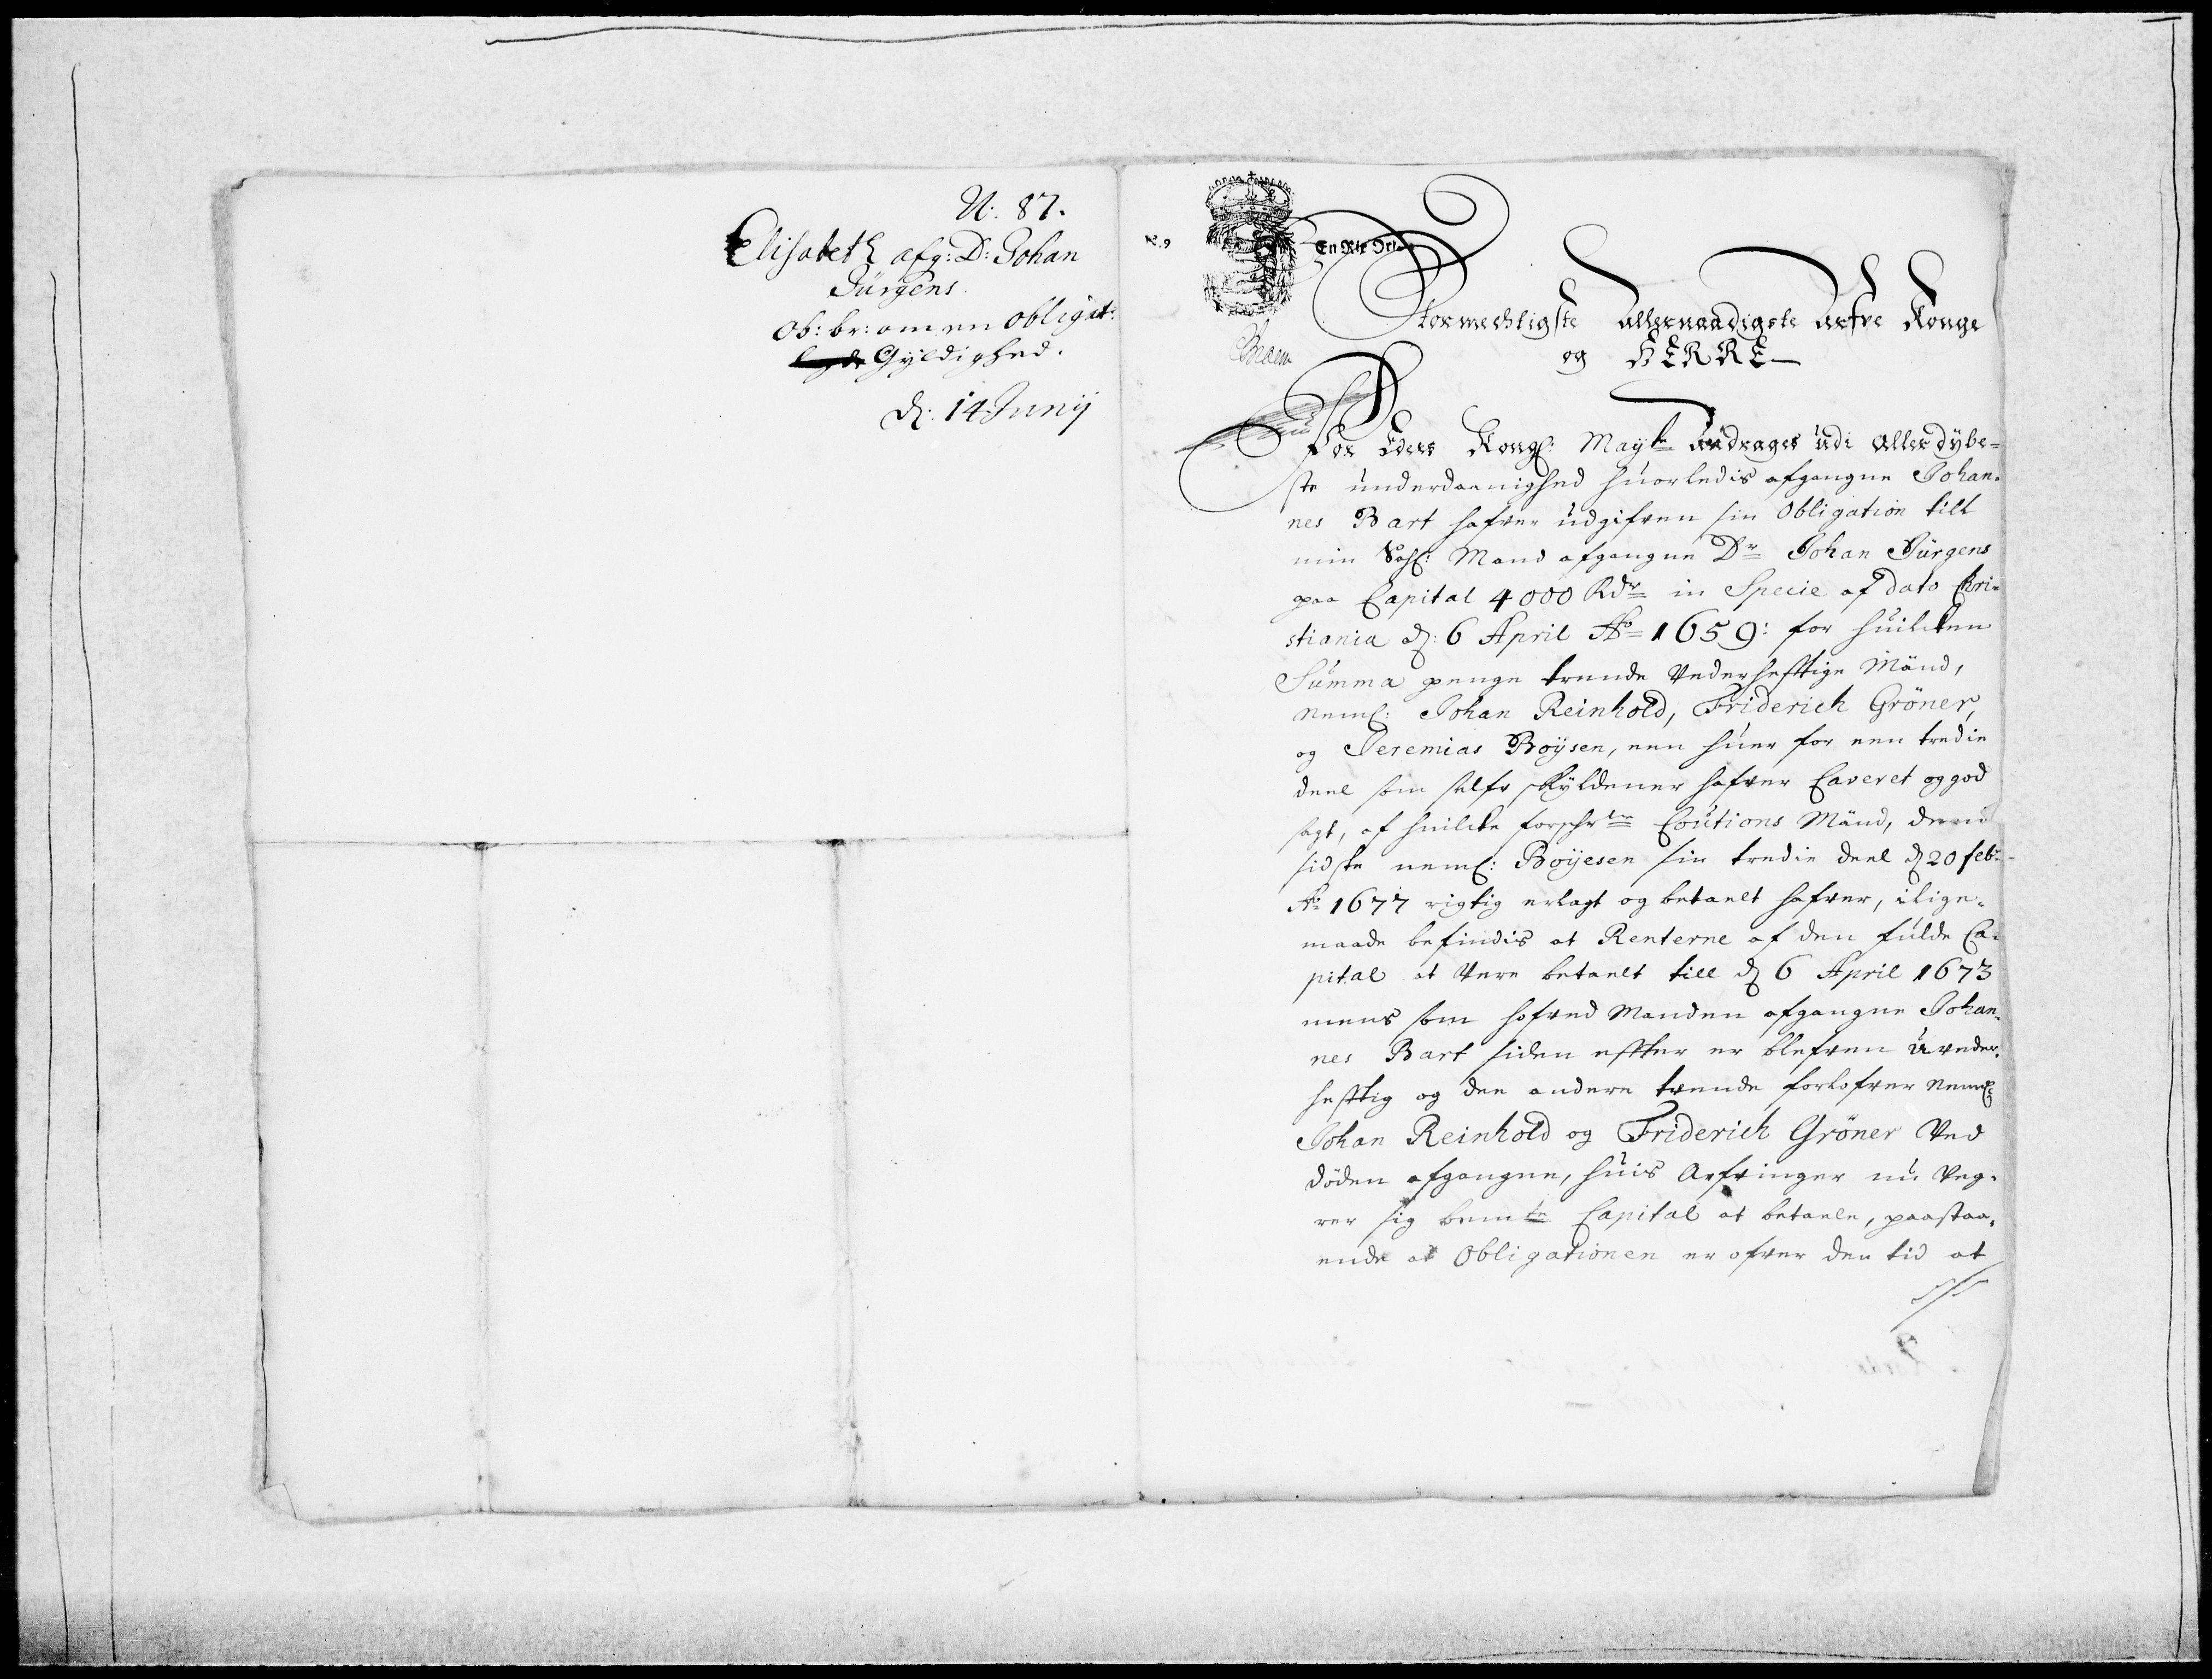 N: 87.
Elisabeth afg: D: Johan
Jürgens
Ob: br: om en Obligat:
Gyldighed.
d: 14 Junij
No 9
En Rix Ort
Stormechtigste Allernaadigste Arfve Konge
og HERRE
For Eders Kongl: Mayts andrages udi Allerdybe-
ste underdaanighed huorledis afgangne Johan-
nes Bart hafver udgifven sin Obligation till
min Sahl: Mand afgangne Dr Johan Jürgens
paa Capital 4000 Rdr in Specie af dato Chri-
stiania d: 6 April Ao 1659: for huilcken
Summa penge trende Vederhefftige Mänd,
neml: Johan Reinhold, Friderich Gröner,
og Jeremias Boysen, een huer for een tredie
deel som selfv skyldener hafver Caveret og god
sagt, af huilcke forschrne Coutions Mänd, denn
sidste neml: Boyesen sin tredie deel d 20 feb:
Ao 1677 rigtig erlagt og betaelt hafver, i lige-
maade befindis at Renterne af den fulde Ca-
pital at Vere betaelt till d 6 April 1673
mens som hofved Manden afgangne Johan-
nes Bart siden effter er blefven uveder-
hefftig og den andere tvende forlofver neml:
Johan Reinhold og Friderich Gröner Ved
döden afgangne, huis Arfvinger nu Veg-
rer sig bemte Capital at betaele, paastaa-
ende at Obligationen er ofver den tid at